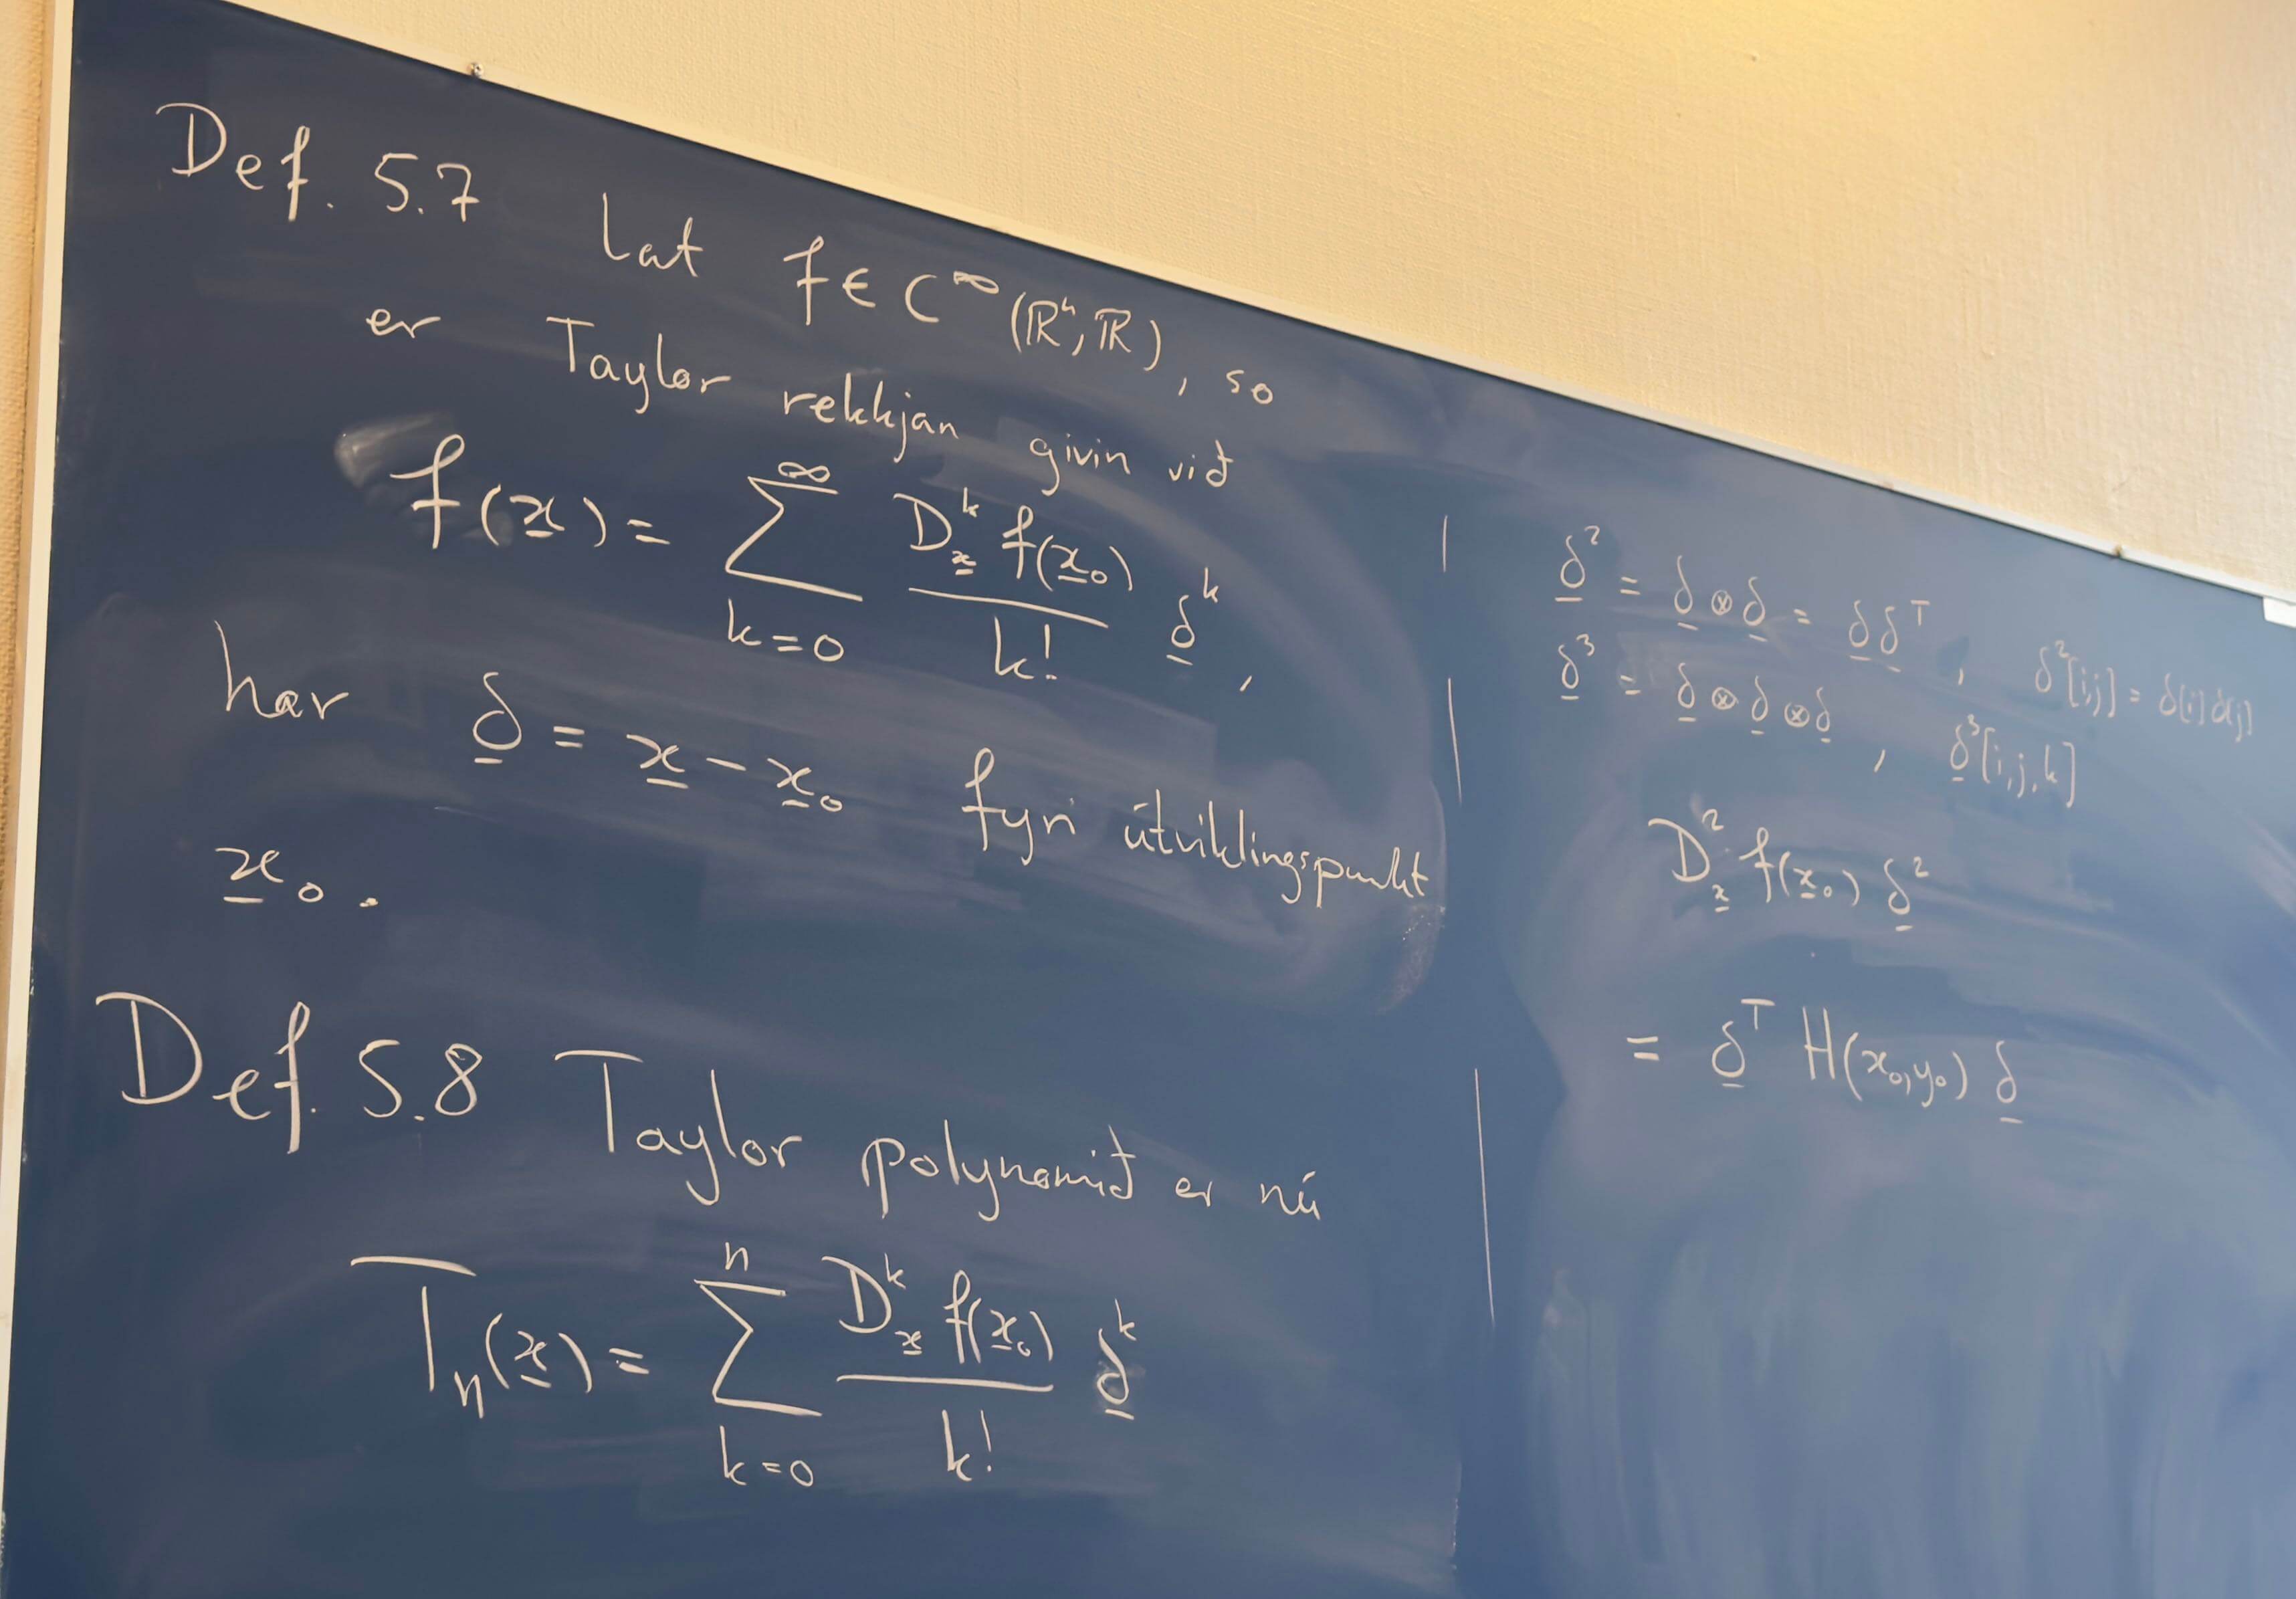 Def. 5.7 Lat f ∈ C^∞(ℝⁿ; ℝ), so
er Taylor rekkjan givin við
f(x̲) = ∑_{k=0}^{∞} \frac{D_{x̲}^k f(x̲₀)}{k!} δ̲^k ,
har δ̲ = x̲ − x̲₀ fyri útviklingspunkt
x̲₀ .
Def. 5.8 Taylor polynomið er nú
T_n(x̲) = ∑_{k=0}^{n} \frac{D_{x̲}^k f(x̲₀)}{k!} δ̲^k
δ̲² = δ̲ ⊗ δ̲ = δ̲ δ̲^T , δ²[i,j] = δ[i] δ[j]
δ̲³ = δ̲ ⊗ δ̲ ⊗ δ̲ , δ̲³[i,j,k]
D_{x̲}² f(x̲₀) δ̲²
= δ̲^T H(x₀,y₀) δ̲